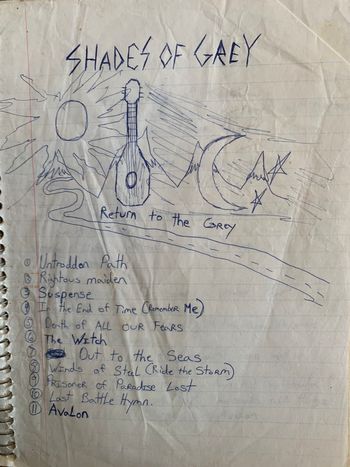 SHADES OF GREY
Return to the Grey
① Untrodden Path
② Rightous maiden
③ Suspense
④ In the End of Time (Remember Me)
⑤ Death of ALL OUR FEARS
⑥ The Witch
⑦ Out to the Seas
⑧ Winds of Steel (Ride the Storm)
⑨ Prisoner of Paradise Lost
⑩ Last Battle Hymn.
⑪ Avalon